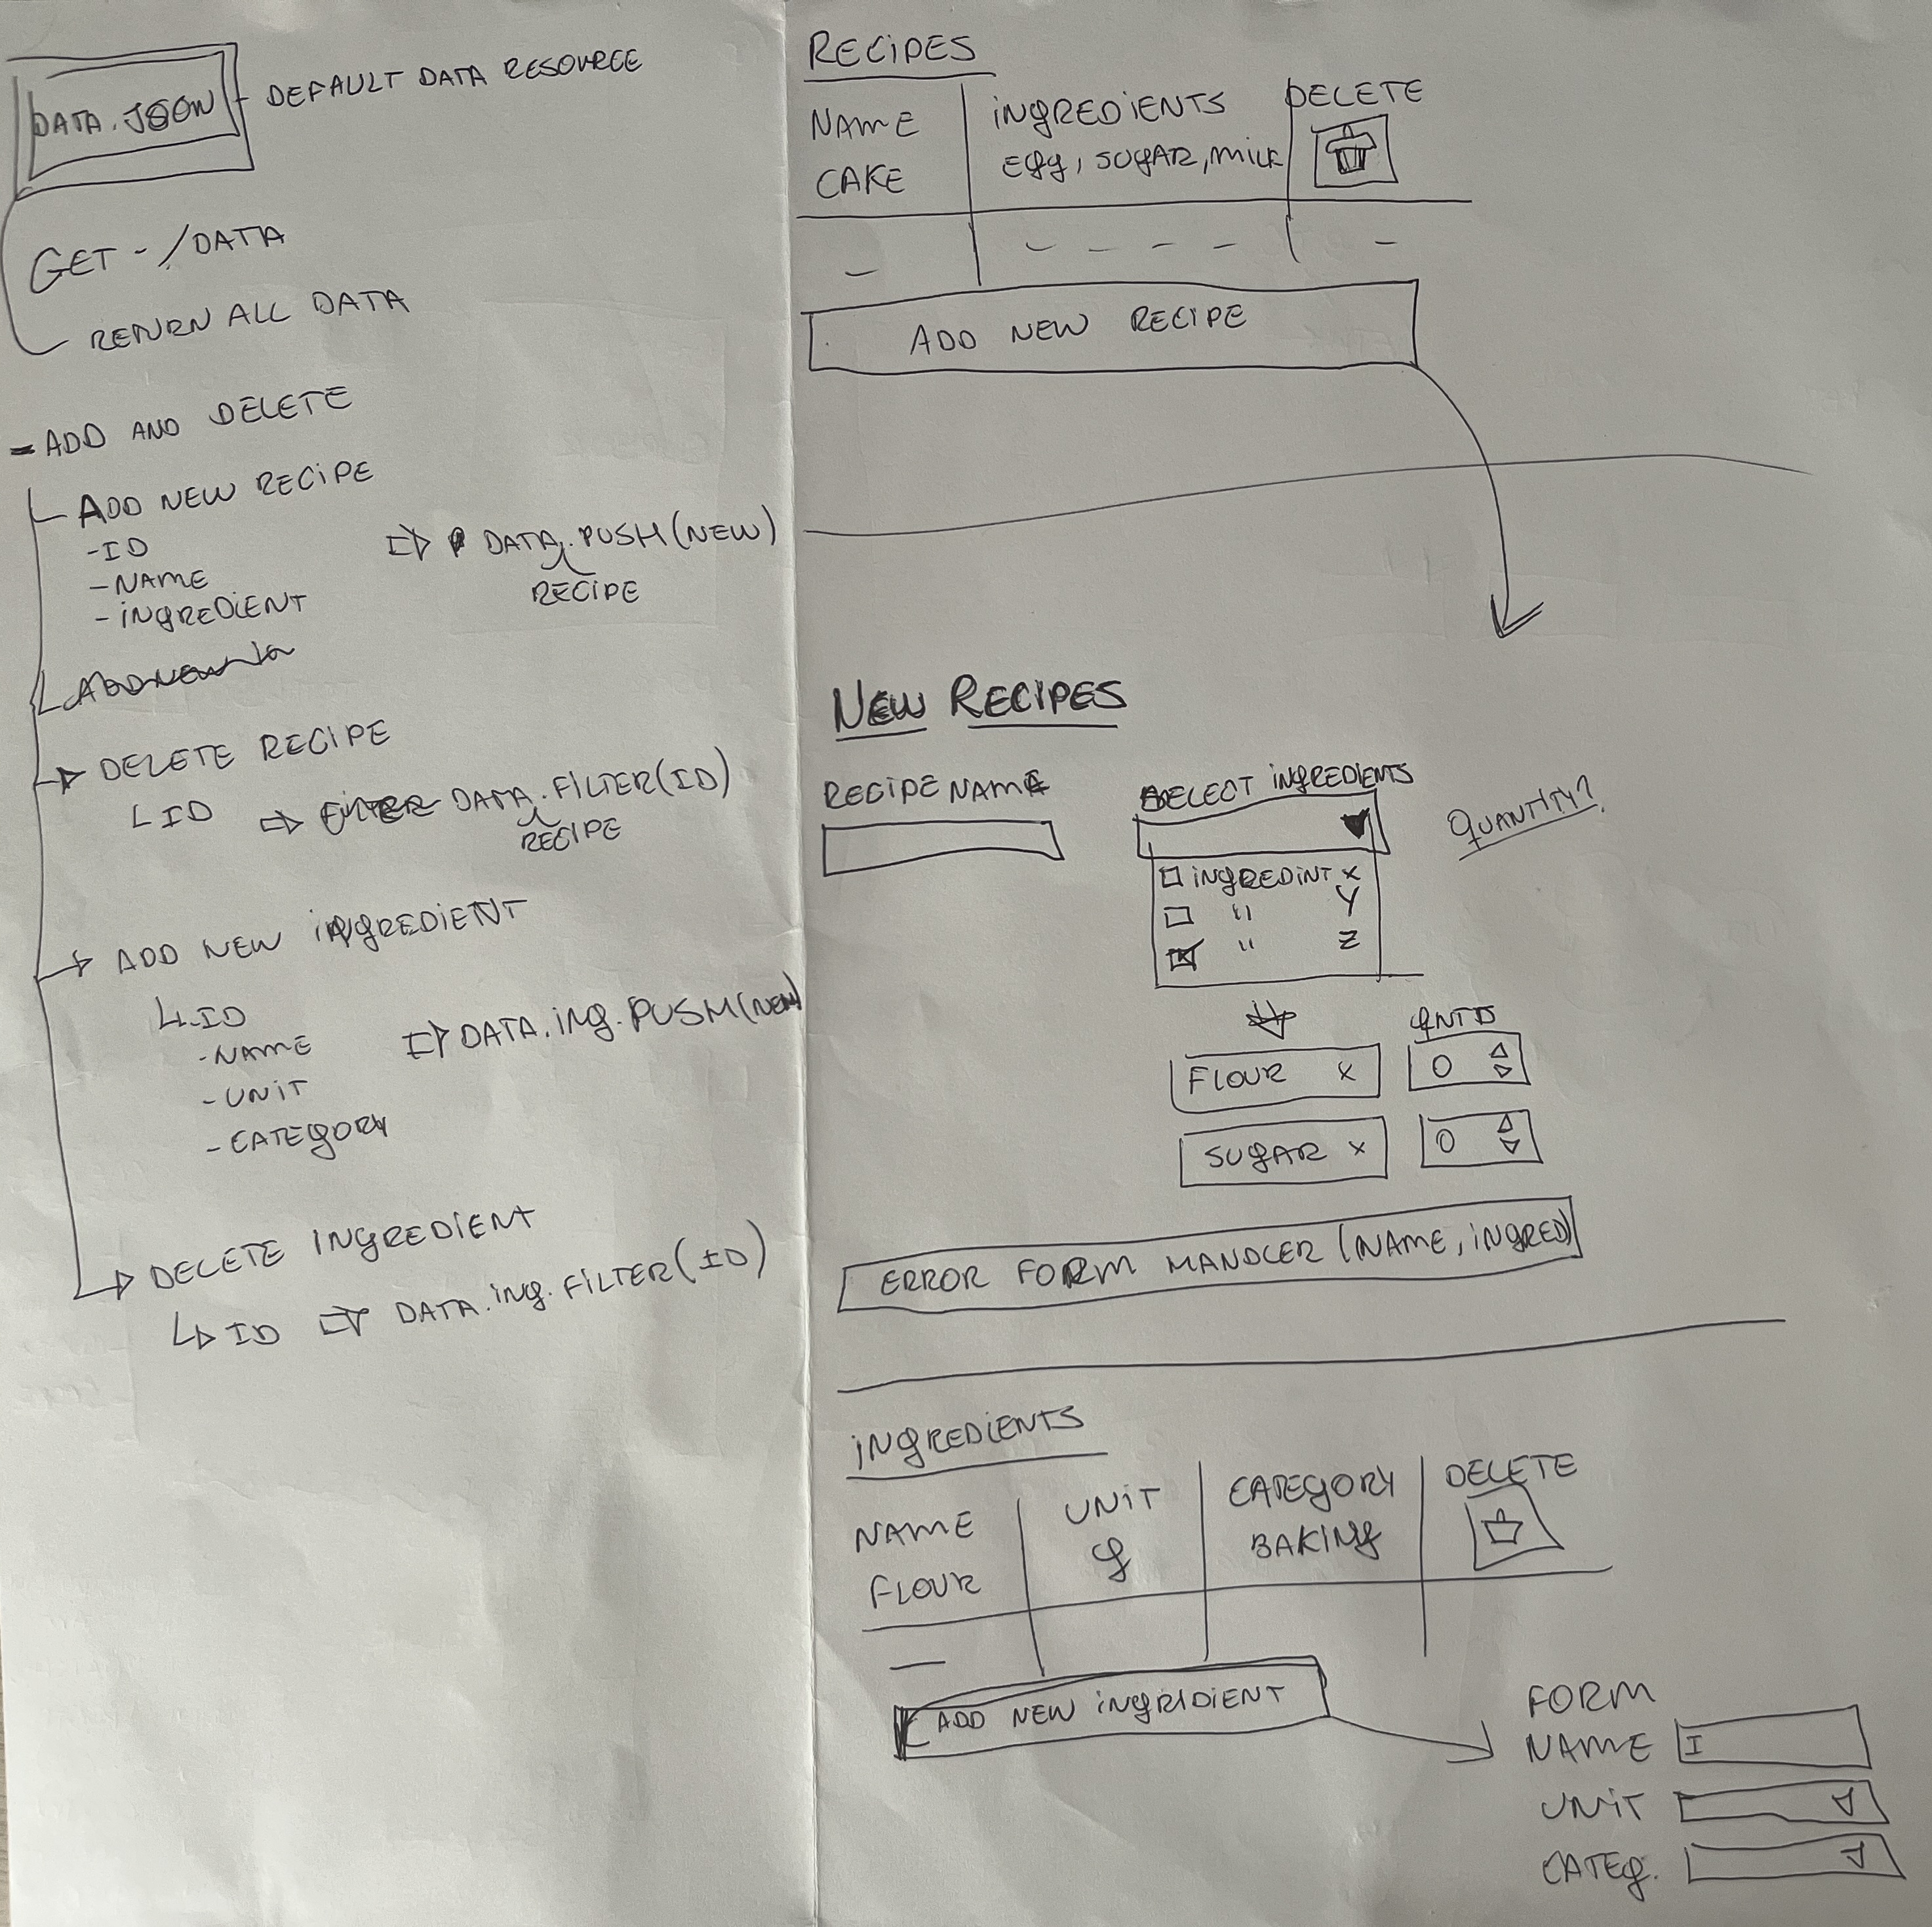 DATA.JSON - DEFAULT DATA RESOURCE
GET - /DATA
RETURN ALL DATA
- ADD AND DELETE
ADD NEW RECIPE
-ID
-NAME
-INGREDIENT
⇒ DATA.PUSH(NEW)
RECIPE
DELETE RECIPE
ID ⇒ DATA.FILTER(ID)
RECIPE
ADD NEW INGREDIENT
ID
-NAME
-UNIT
-CATEGORY
⇒ DATA.ING.PUSH(NEW)
DELETE INGREDIENT
ID ⇒ DATA.ING.FILTER(ID)
RECIPES
NAME INGREDIENTS DELETE
CAKE EGG, SUGAR, MILK
ADD NEW RECIPE
NEW RECIPES
RECIPE NAME SELECT INGREDIENTS
QUANTITY?
INGREDINT X
" Y
" Z
QNTD
FLOUR X 0
SUGAR X 0
ERROR FORM HANDLER (NAME, INGRED)
INGREDIENTS
NAME UNIT CATEGORY DELETE
FLOUR g BAKING
ADD NEW INGRIDIENT
FORM
NAME I
UNIT
CATEG.